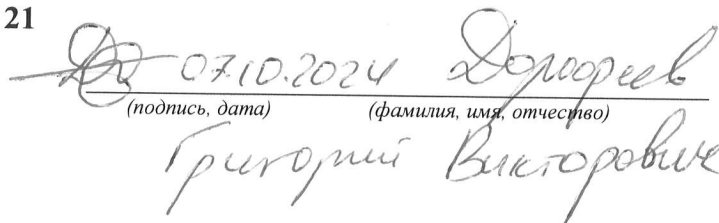 21
07.10.2024 Дорофеев
(подпись, дата) (фамилия, имя, отчество)
Григорий Викторович